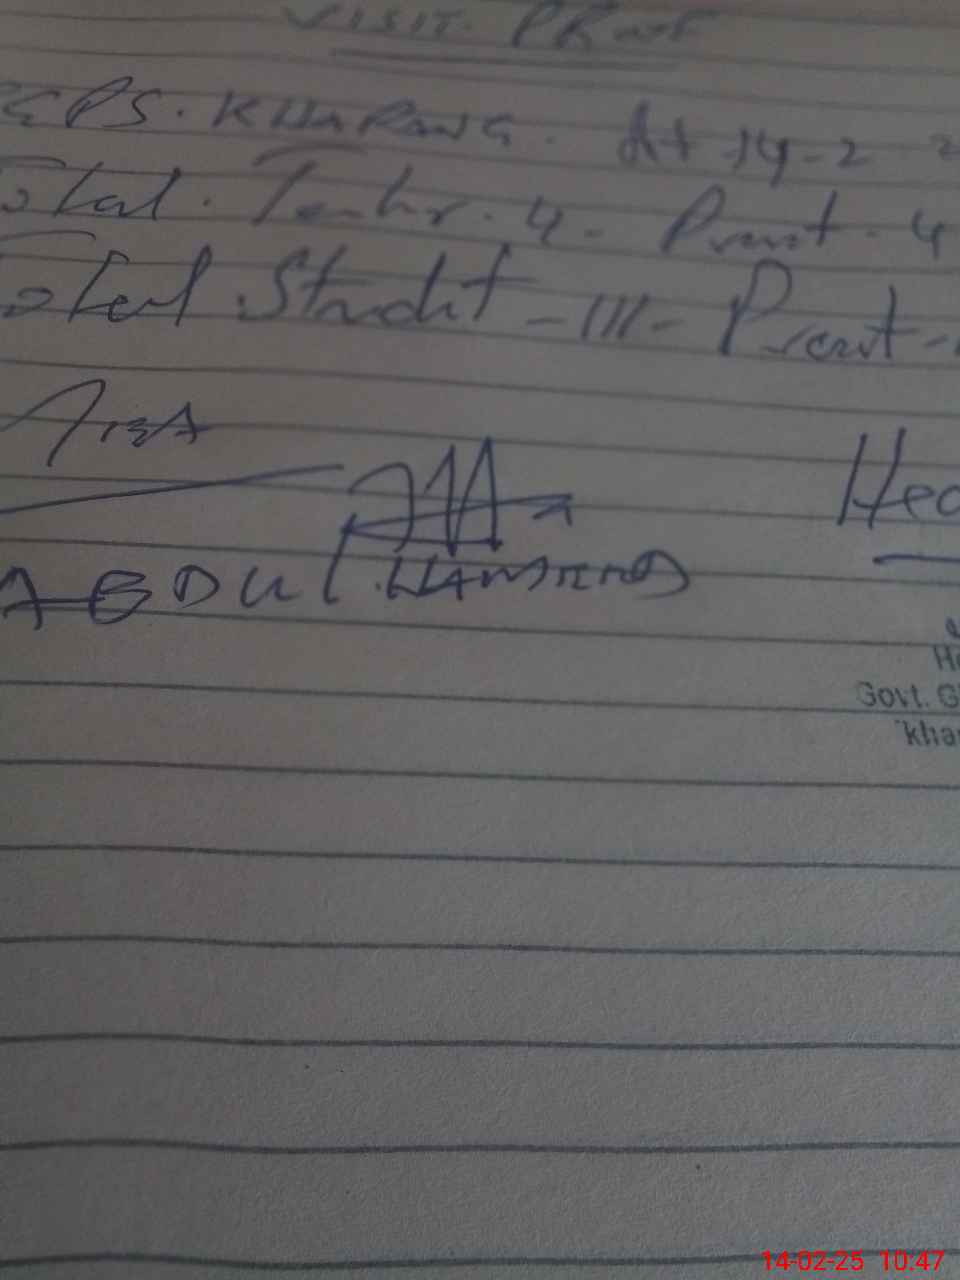 VISIT PRoof
GPS. KHARANG. At 14-2
Total. Teachr. 4 - Present. 4
Total Student - 111 - Present -
ABDUL HAMEED
Hea
Govt. G
khar
14-02-25 10:47